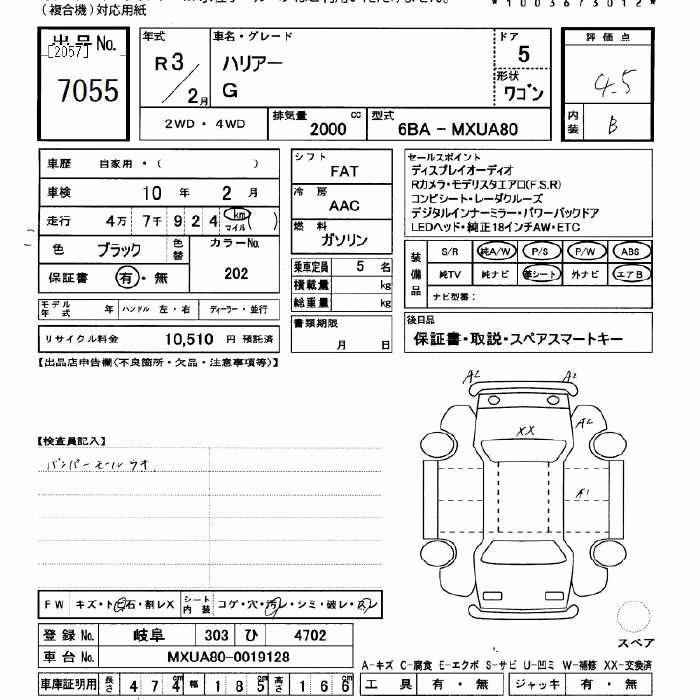 (複合機)対応用紙
*10036/3012*
出品No.
[2057]
7055
年式
R3/2月
車名・グレード
ハリアー
G
ドア
5
形状
ワゴン
評価点
4.5
内装
B
2WD・4WD
排気量
2000
cc
型式
6BA - MXUA80
車歴 自家用・( )
車検 10年 2月
走行 4万 7千 9 2 4 km マイル
色 ブラック 色替 カラーNo.
保証書 有・無 202
モデル年式 年 ハンドル 左・右 ディーラー・並行
リサイクル料金 10,510 円 預託済
シフト
FAT
冷房
AAC
燃料
ガソリン
乗車定員 5 名
積載量 kg
総重量 kg
書類期限
月 日
セールスポイント
ディスプレイオーディオ
Rカメラ・モデリスタエアロ(F.S.R)
コンビシート・レーダクルーズ
デジタルインナーミラー・パワーバックドア
LEDヘッド・純正18インチAW・ETC
装備品
S/R 純A/W P/S P/W ABS
純TV 純ナビ 革シート 外ナビ エアB
ナビ型番:
後日品
保証書・取説・スペアスマートキー
【出品店申告欄(不良箇所・欠品・注意事項等)】
【検査員記入】
バンパーモールウオ
A2 A2
A2
XX
A1
FW キズ・ト石・割レX シート内装 コゲ・穴・汚レ・シミ・破レ・
登録No. 岐阜 303 ひ 4702
車台No. MXUA80-0019128
車庫証明用 長さ 474cm 幅 185cm 高さ 166cm
スペア
A-キズ C-腐食 E-エクボ S-サビ U-凹ミ W-補修 XX-交換済
工具 有・無 ジャッキ 有・無